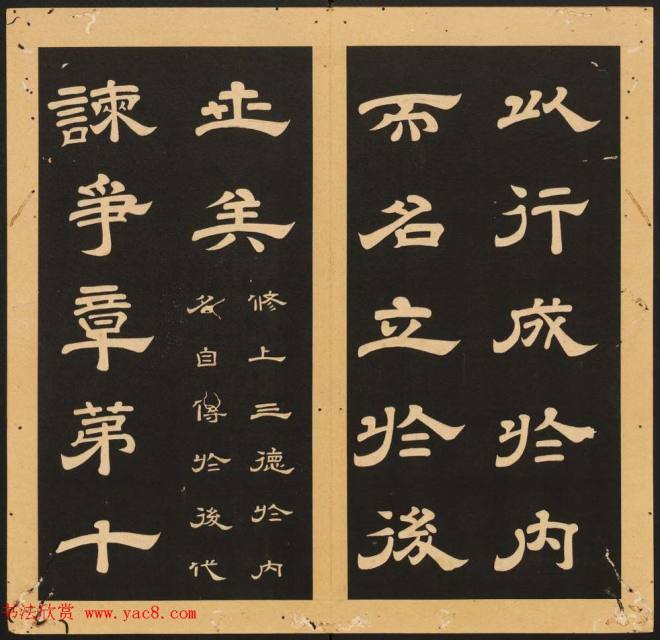 以行成於內
而名立於後
世矣
修上三德於內
名自傳於後代
諫爭章第十
书法欣赏 www.yac8.com